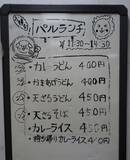 パルランチ
11:30~14:30
・カレーうどん 400円
・かきあげうどん 400円
・天ぷらうどん 450円
・天ぷらそば 450円
・カレーライス 450円
・持ち帰りカレーライス 400円